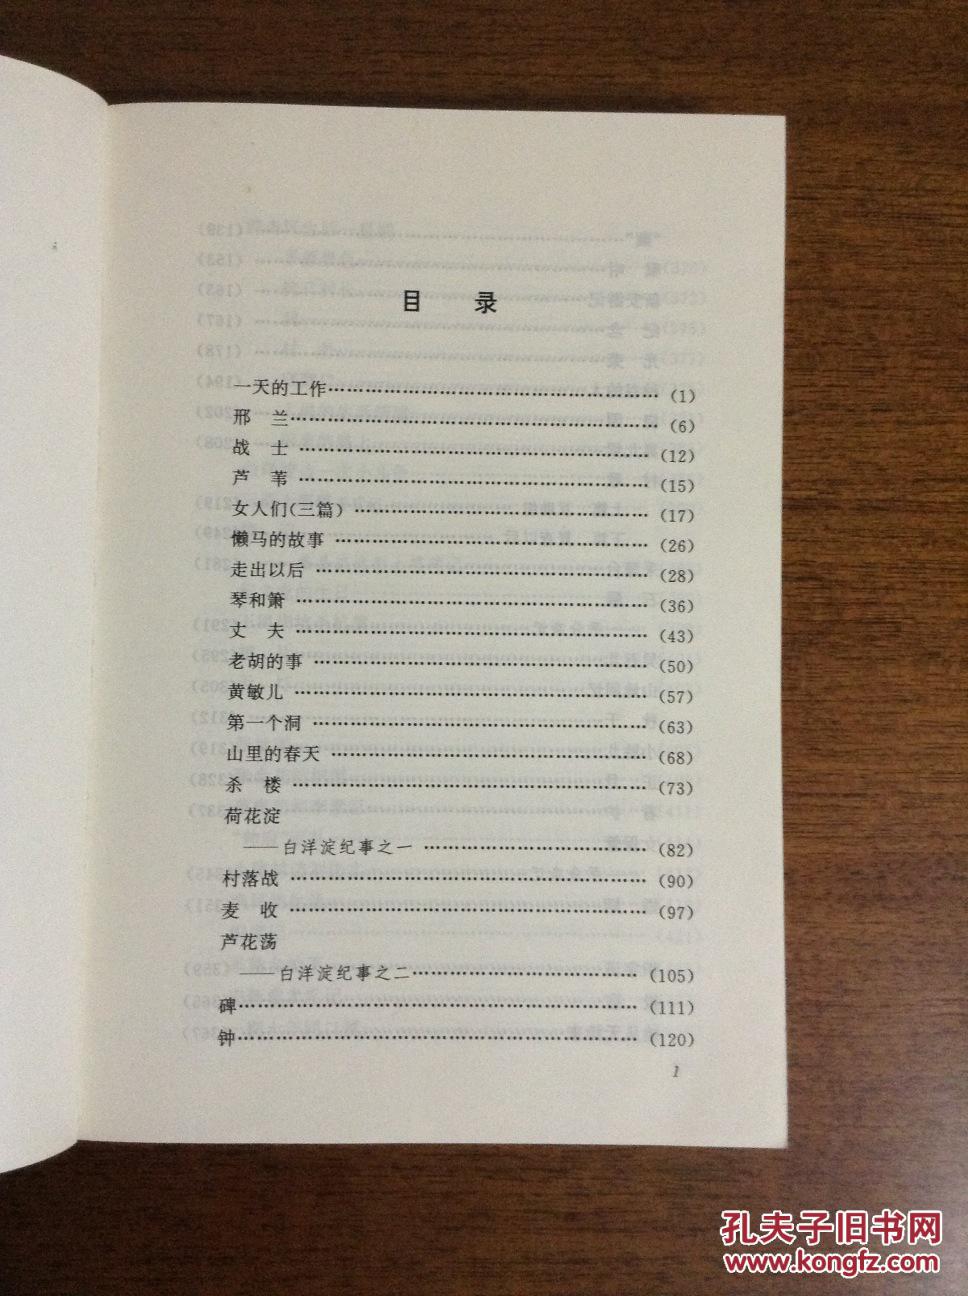 目 录
一天的工作………………………………(1)
邢 兰……………………………………(6)
战 士……………………………………(12)
芦 苇……………………………………(15)
女人们(三篇)……………………………(17)
懒马的故事………………………………(26)
走出以后…………………………………(28)
琴和箫……………………………………(36)
丈 夫……………………………………(43)
老胡的事…………………………………(50)
黄敏儿……………………………………(57)
第一个洞…………………………………(63)
山里的春天………………………………(68)
杀 楼……………………………………(73)
荷花淀
——白洋淀纪事之一……………………(82)
村落战……………………………………(90)
麦 收……………………………………(97)
芦花荡
——白洋淀纪事之二……………………(105)
碑…………………………………………(111)
钟…………………………………………(120)
1
孔夫子旧书网
www.kongfz.com